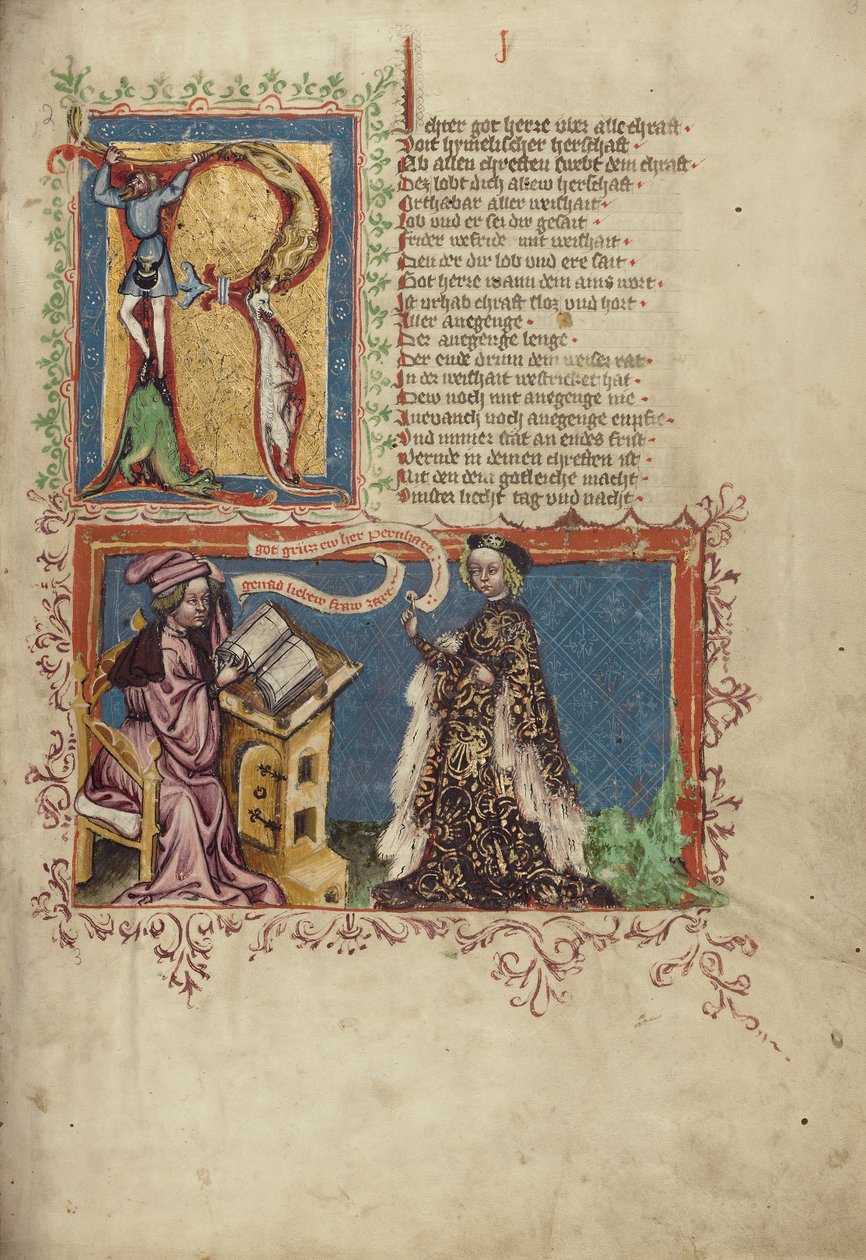 J
R
Ichter got herre vber alle chraft
Voit hymelischer herschaft
Ob allen chreften swebt dein chraft
Dez lobt dich alew herschaft
Orthabar aller weishait
Lob vnd er sei dir gesait
Frider wefride mit weishait
Den der dir lob vnd ere sait
Got herre wann dein ains wort
Ist vrhab chraft sloz vnd hort
Aller anegenge
Der anegenge lenge
Der ende drum dein weiser rat
In der weishait westricket hat
Dew noch mit anegenge nie
Anevanch noch anegenge enpfie
Vnd immer stat an endes frist
Wernde in deinen chreften ist
Mit den dein gotleiche macht
Vinster liecht tag vnd nacht
got grüzz ew her pernhart
genad liebew fraw zart